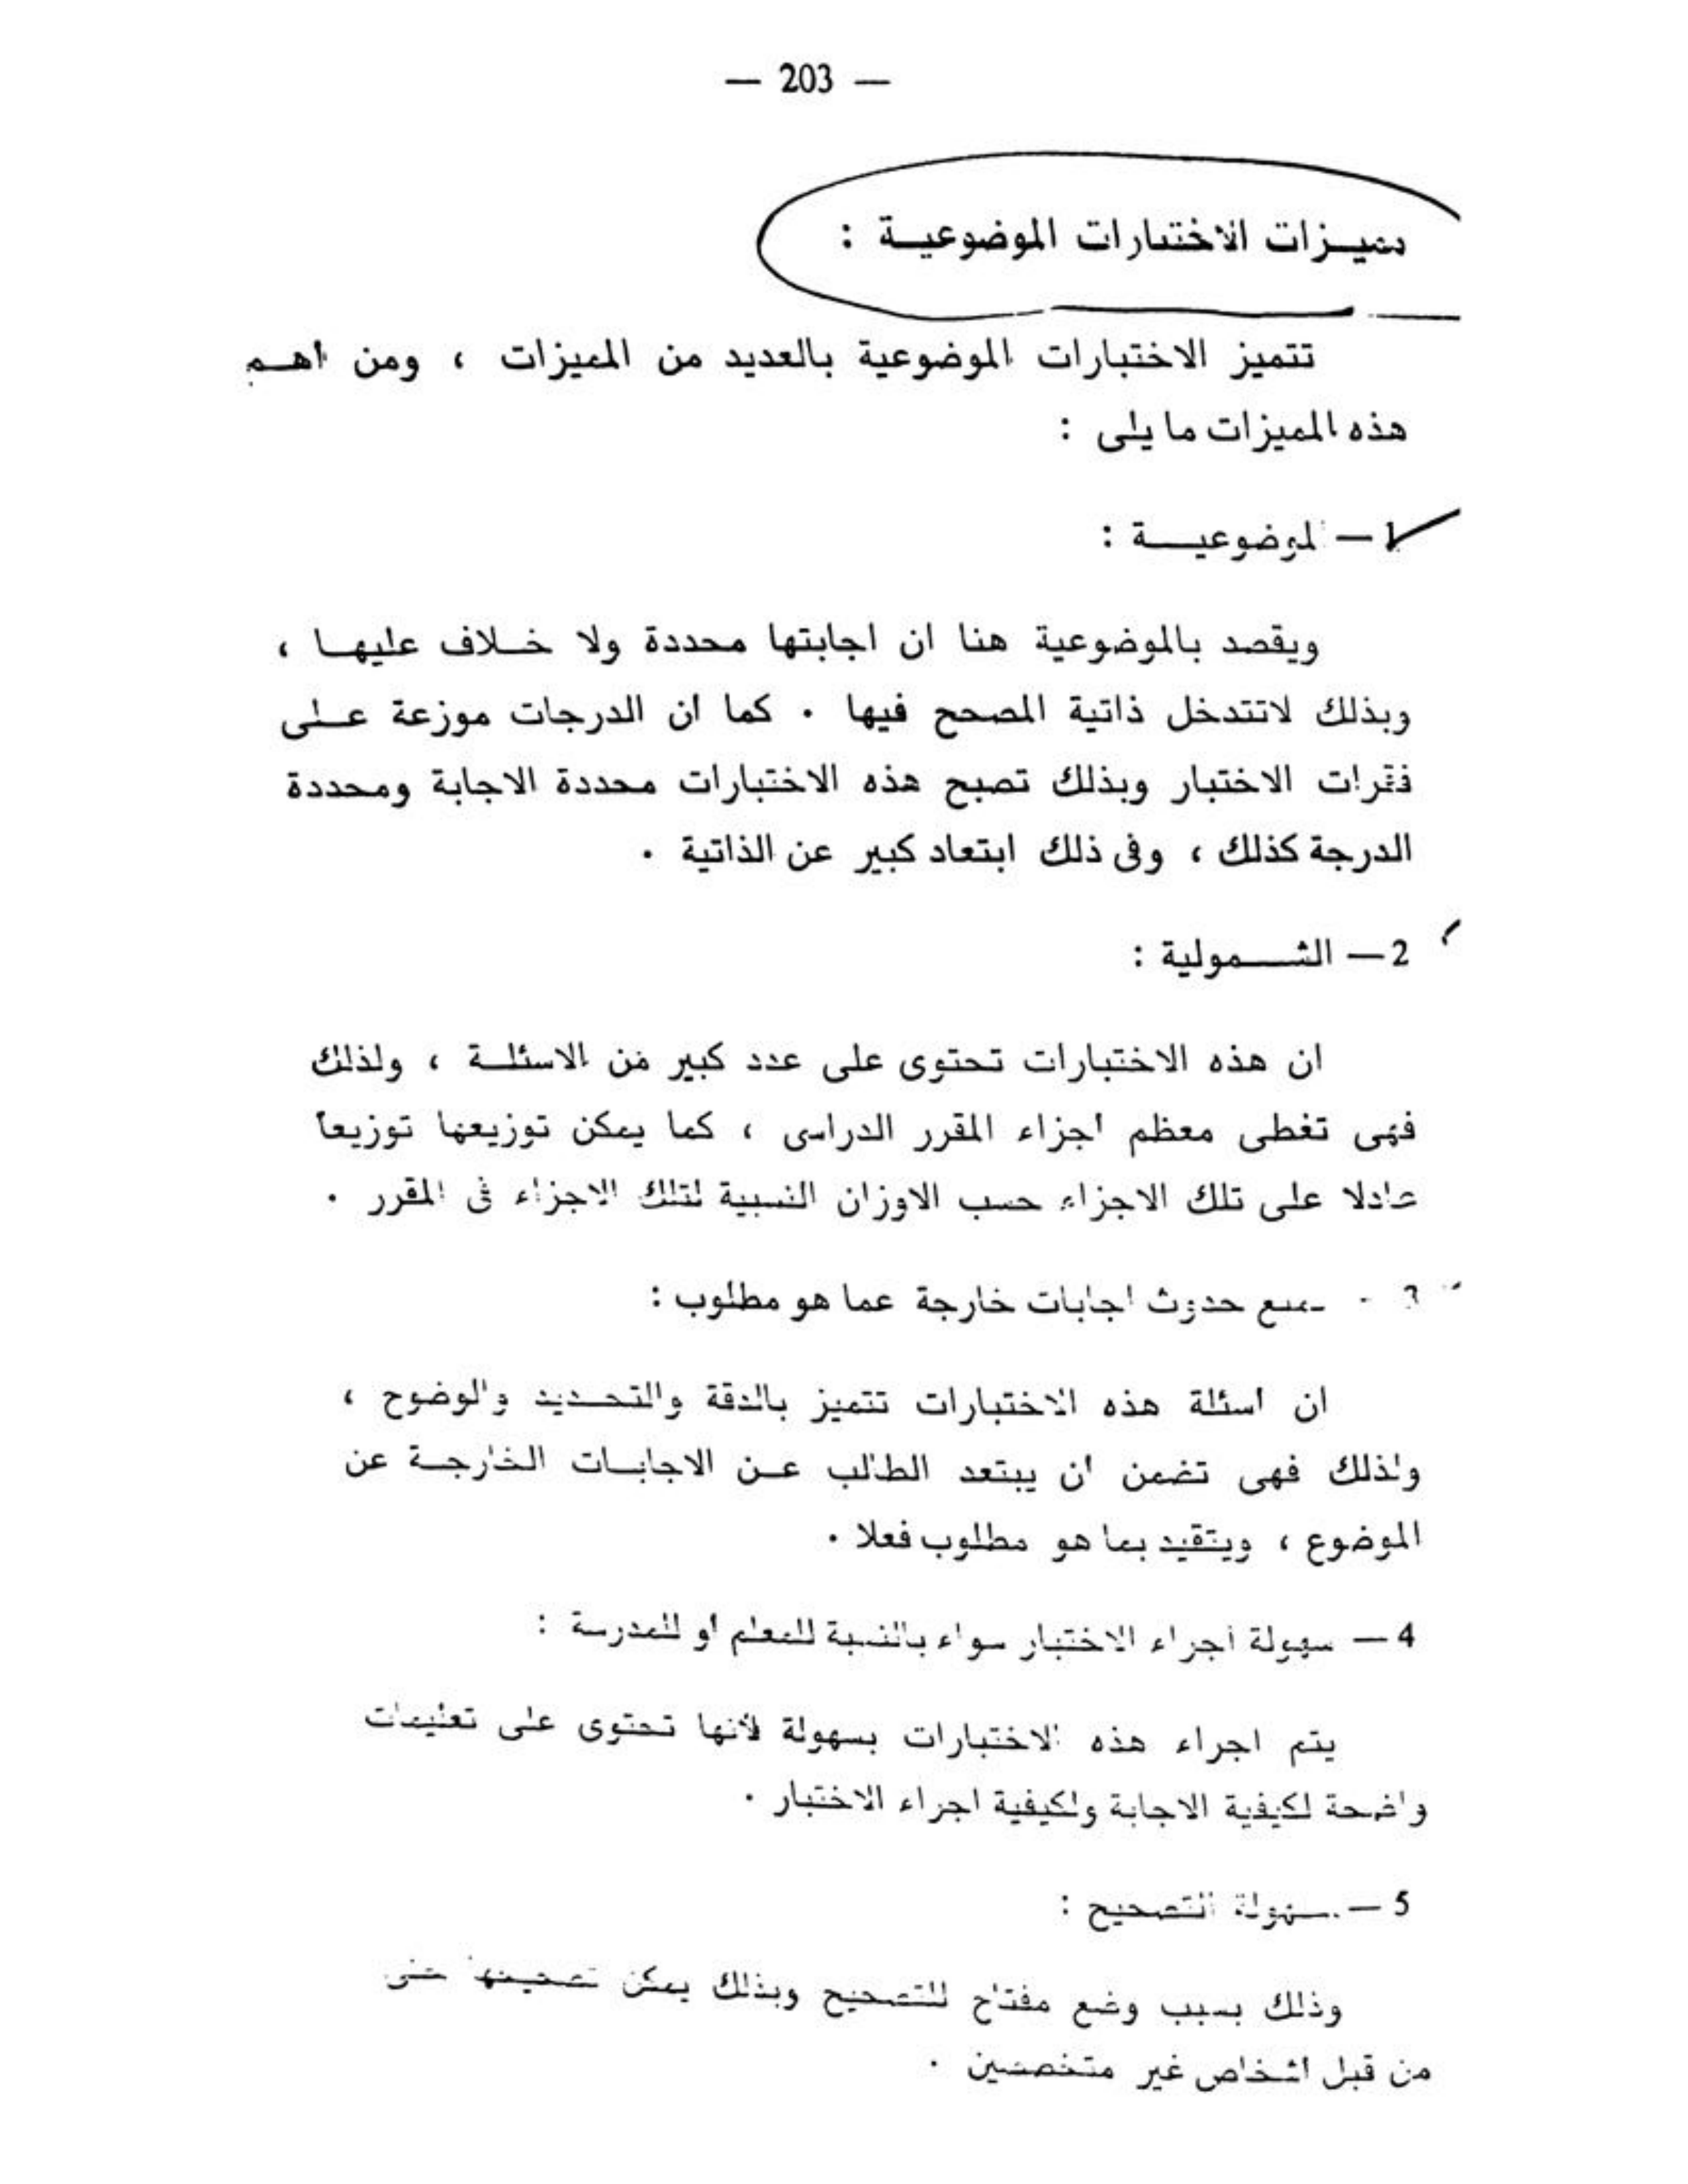 — 203 —
مميزات الاختبارات الموضوعية :
تتميز الاختبارات الموضوعية بالعديد من المميزات ، ومن اهم
هذه المميزات ما يلى :
1 — الموضوعية :
ويقصد بالموضوعية هنا ان اجابتها محددة ولا خلاف عليها ،
وبذلك لاتتدخل ذاتية المصحح فيها . كما ان الدرجات موزعة على
فقرات الاختبار وبذلك تصبح هذه الاختبارات محددة الاجابة ومحددة
الدرجة كذلك ، وفى ذلك ابتعاد كبير عن الذاتية .
2 — الشمولية :
ان هذه الاختبارات تحتوى على عدد كبير من الاسئلة ، ولذلك
فهى تغطى معظم اجزاء المقرر الدراسى ، كما يمكن توزيعها توزيعا
عادلا على تلك الاجزاء حسب الاوزان النسبية لتلك الاجزاء فى المقرر .
3 - تمنع حدوث اجابات خارجة عما هو مطلوب :
ان اسئلة هذه الاختبارات تتميز بالدقة والتحديد والوضوح ،
ولذلك فهى تضمن ان يبتعد الطالب عن الاجابات الخارجة عن
الموضوع ، ويتقيد بما هو مطلوب فعلا .
4 — سهولة اجراء الاختبار سواء بالنسبة للمعلم أو للمدرسة :
يتم اجراء هذه الاختبارات بسهولة لأنها تحتوى على تعليمات
واضحة لكيفية الاجابة ولكيفية اجراء الاختبار .
5 — سهولة التصحيح :
وذلك بسبب وضع مفتاح للتصحيح وبذلك يمكن تصحيحها حتى
من قبل اشخاص غير متخصصين .